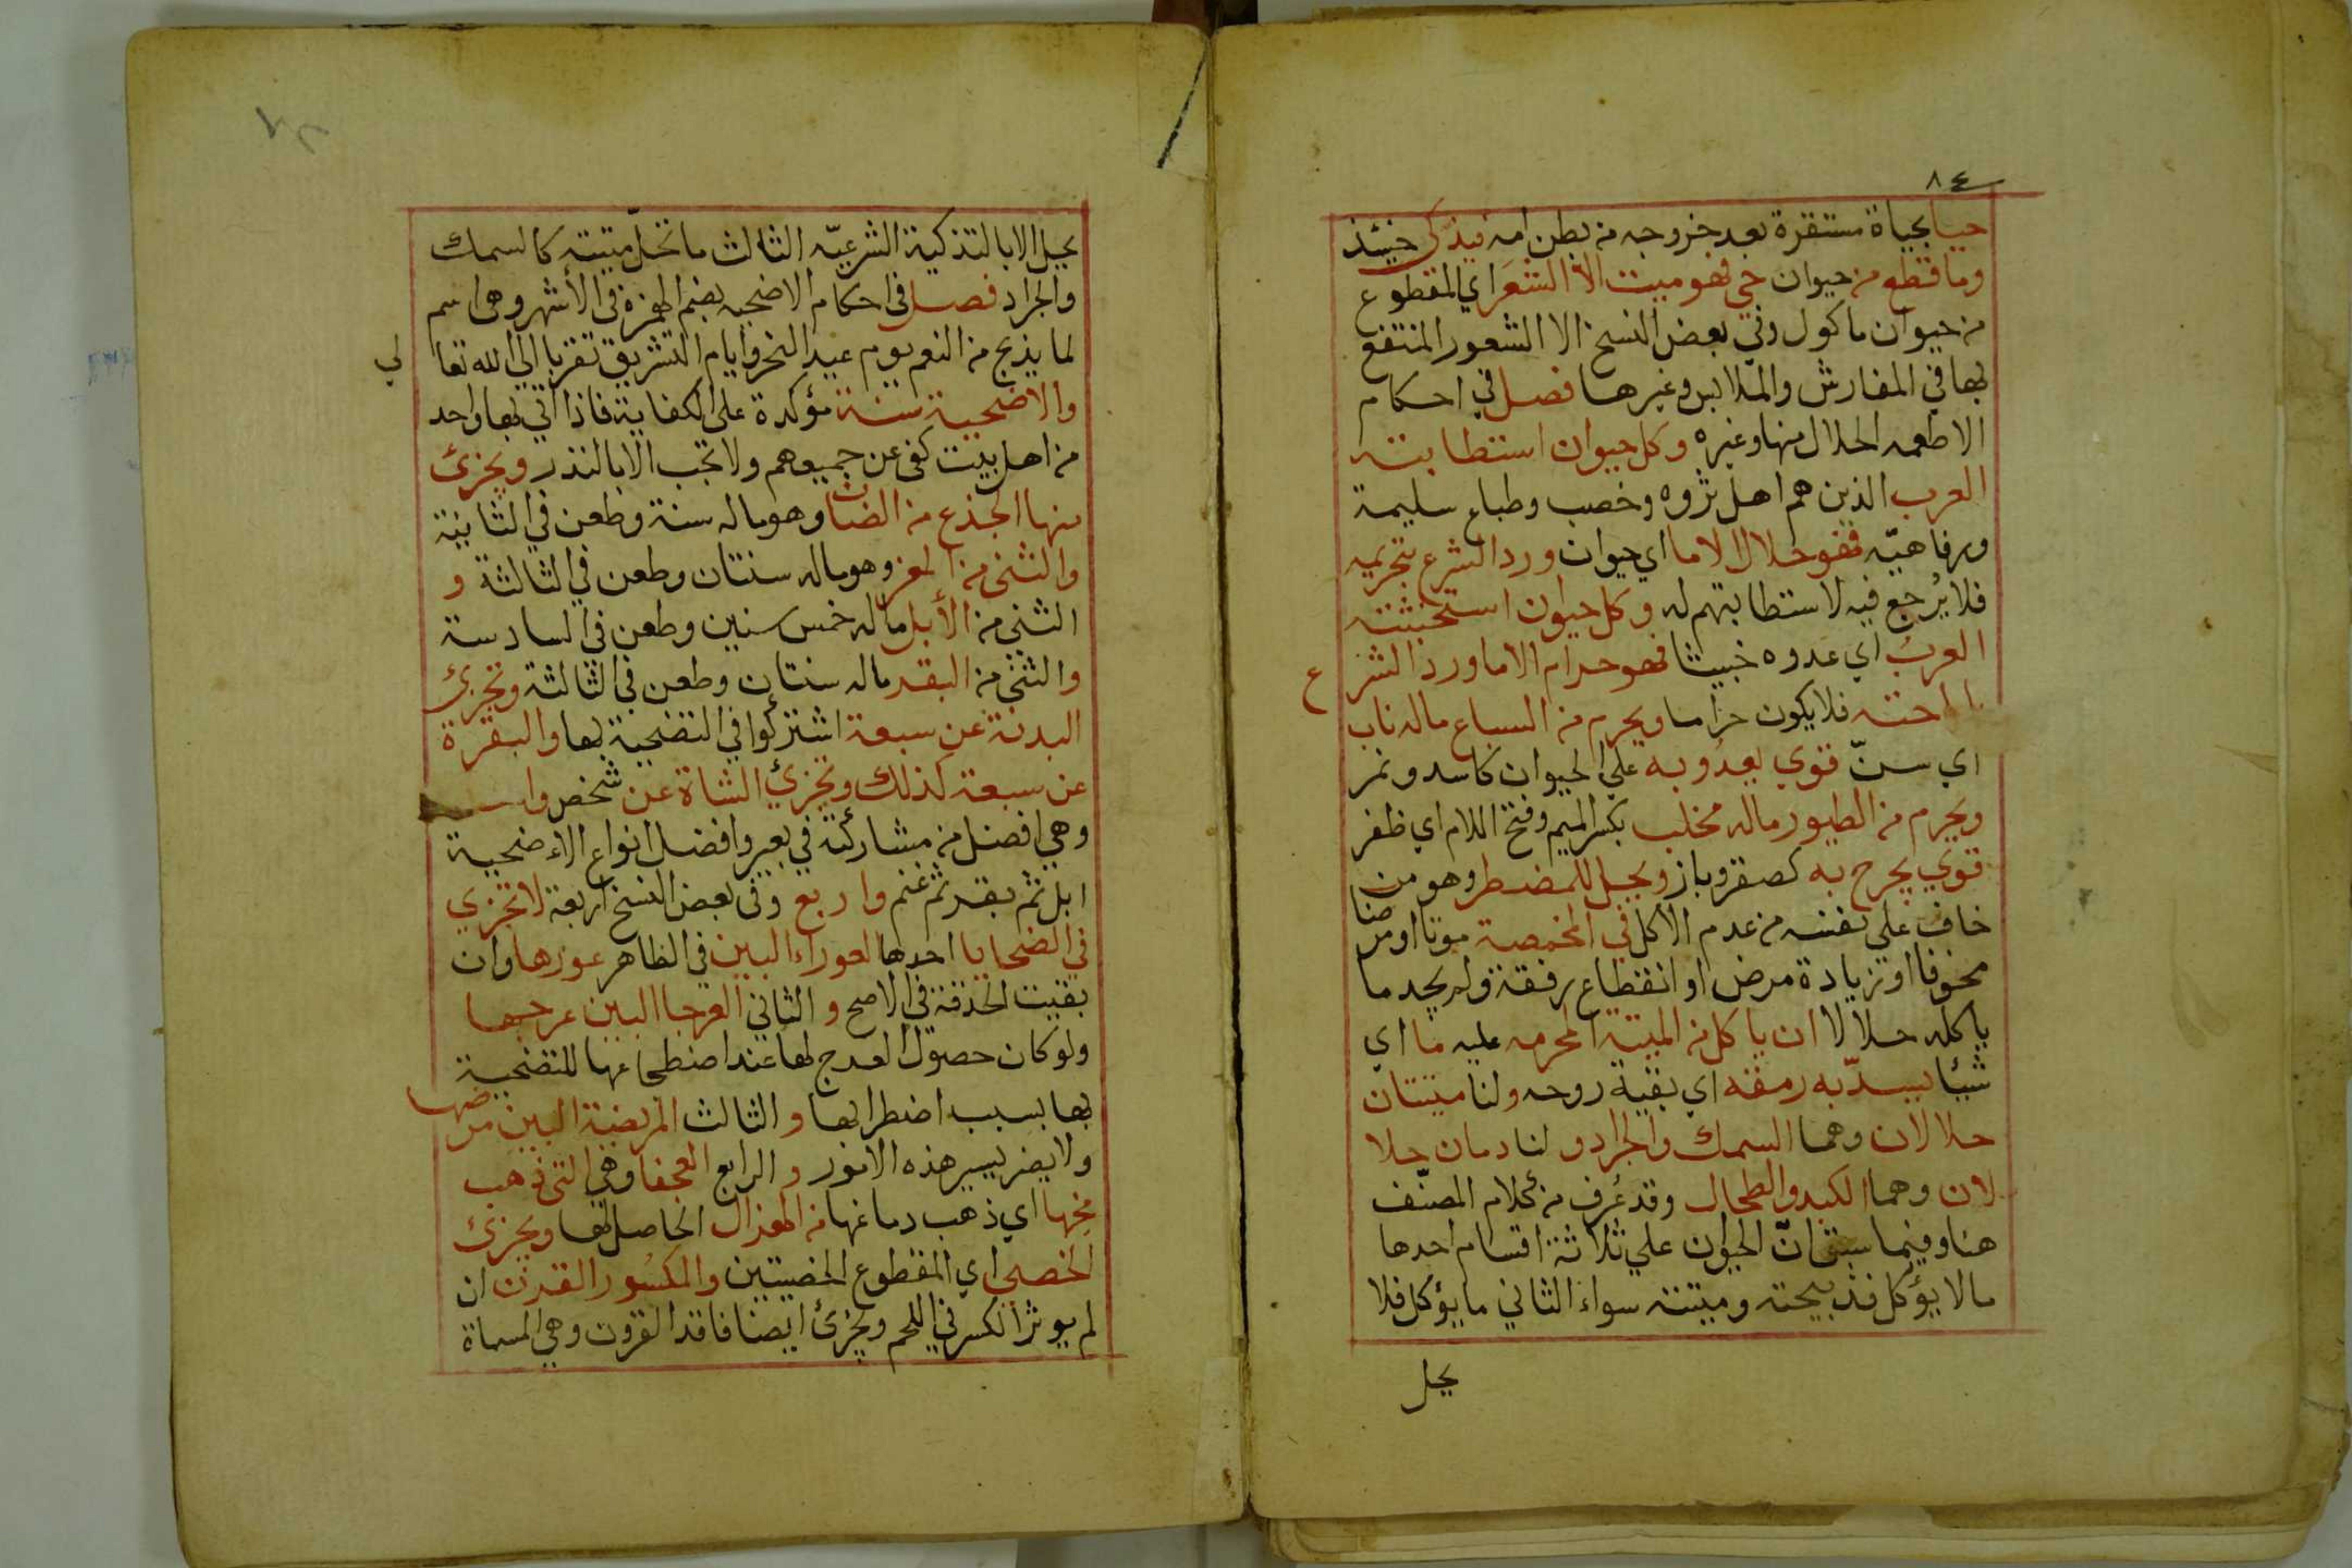 ٨٤
حيا بحياة مستقرة بعد خروجه من بطن امه فيذكى حينئذ
وما قطع من حيوان حي فهو ميت الا الشعر اي المقطوع
من حيوان ماكول وفي بعض النسخ الا الشعور المنتفع
بها في المفارش والملابس وغيرها فصل في احكام
الاطعمه الحلال منها وغيره وكل حيوان استطابته
العرب الذين هم اهل ثروه وخصب وطباع سليمة
ورفاهيّه فهو حلال الا ما اي حيوان ورد الشرع بتحريمه
فلا يُرجع فيه لاستطابتهم له وكل حيوان استخبثته
العربُ اي عدوه خبيثا فهو حرام الا ما ورد الشرع
باباحته فلا يكون حراما ويحرم من السباع ماله ناب
اي سنّ قوي يعدُو به علي الحيوان كاسد ونمر
ويحرم من الطيور ماله مخلب بكسر الميم وفتح اللام اي ظفر
قوي يجرح به كصقر وباز ويحل للمضطر وهو من
خاف علي نفسه من عدم الاكل في المخمصة موتا او مرضا
مخوفا او زيادة مرض او انقطاع رفقة ولم يجد ما
ياكله حلالا ان ياكل من الميتة المحرمه عليه ما اي
شيئا يسدّ به رمقه اي بقية روحه ولنا ميتتان
حلالان وهما السمك والجراد و لنا دمان حلا
لان وهما الكبد والطحال وقد عُرف من كلام المصنّف
هنا وفيما سبق انّ الحيوان علي ثلاثة اقسام احدها
مالا يؤكل فذبيحته وميتته سواء الثاني ما يؤكل فلا
يحل
يحل الا بالتذكية الشرعيّه الثالث ما تحلّ ميتته كالسمك
والجراد فصل في احكام الاضحيه بضم الهمزة في الأشهر وهي اسم
لما يذبح من النعم يوم عيد النحر وايام التشريق تقربا الي الله تعالي
والاضحية سنة مؤكدة على الكفاية فاذا اتي بها واحد
من اهل بيت كفى عن جميعهم ولا تجب الا بالنذر ويجزئ
منها الجذع من الضان وهو ماله سنة وطعن في الثانية
والثني من المعز وهو ماله سنتان وطعن في الثالثة و
الثني من الأبل ماله خمس سنين وطعن في السادسة
والثني من البقر ماله سنتان وطعن في الثالثة وتجزئ
البدنة عن سبعة اشتركوا في التضحية بها والبقرة
عن سبعة كذلك وتجزئ الشاة عن شخص
وهي افضل من مشاركته في بعير وافضل انواع الاءضحية
ابل ثم بقر ثم غنم واربع وفي بعض النسخ اربعة لا تجزي
في الضحايا احدها العوراء البين في الظاهر عورها وان
بقيت الحدقة في الاصح و الثاني العرجا البين عرجها
ولو كان حصول العرج لها عند اضطجاعها للتضحية
بها بسبب اضطرابها و الثالث المريضة البين مرضها
ولا يضر يسير هذه الامور و الرابع العجفا وهي التي ذهب
مخها اي ذهب دماغها من الهزال الحاصل لها ويجزئ
الخصي اي المقطوع الخصيتين والمكسُور القرن ان
لم يوثر الكسر في اللحم ويجزئ ايضا فاقد القرون وهي المسماة